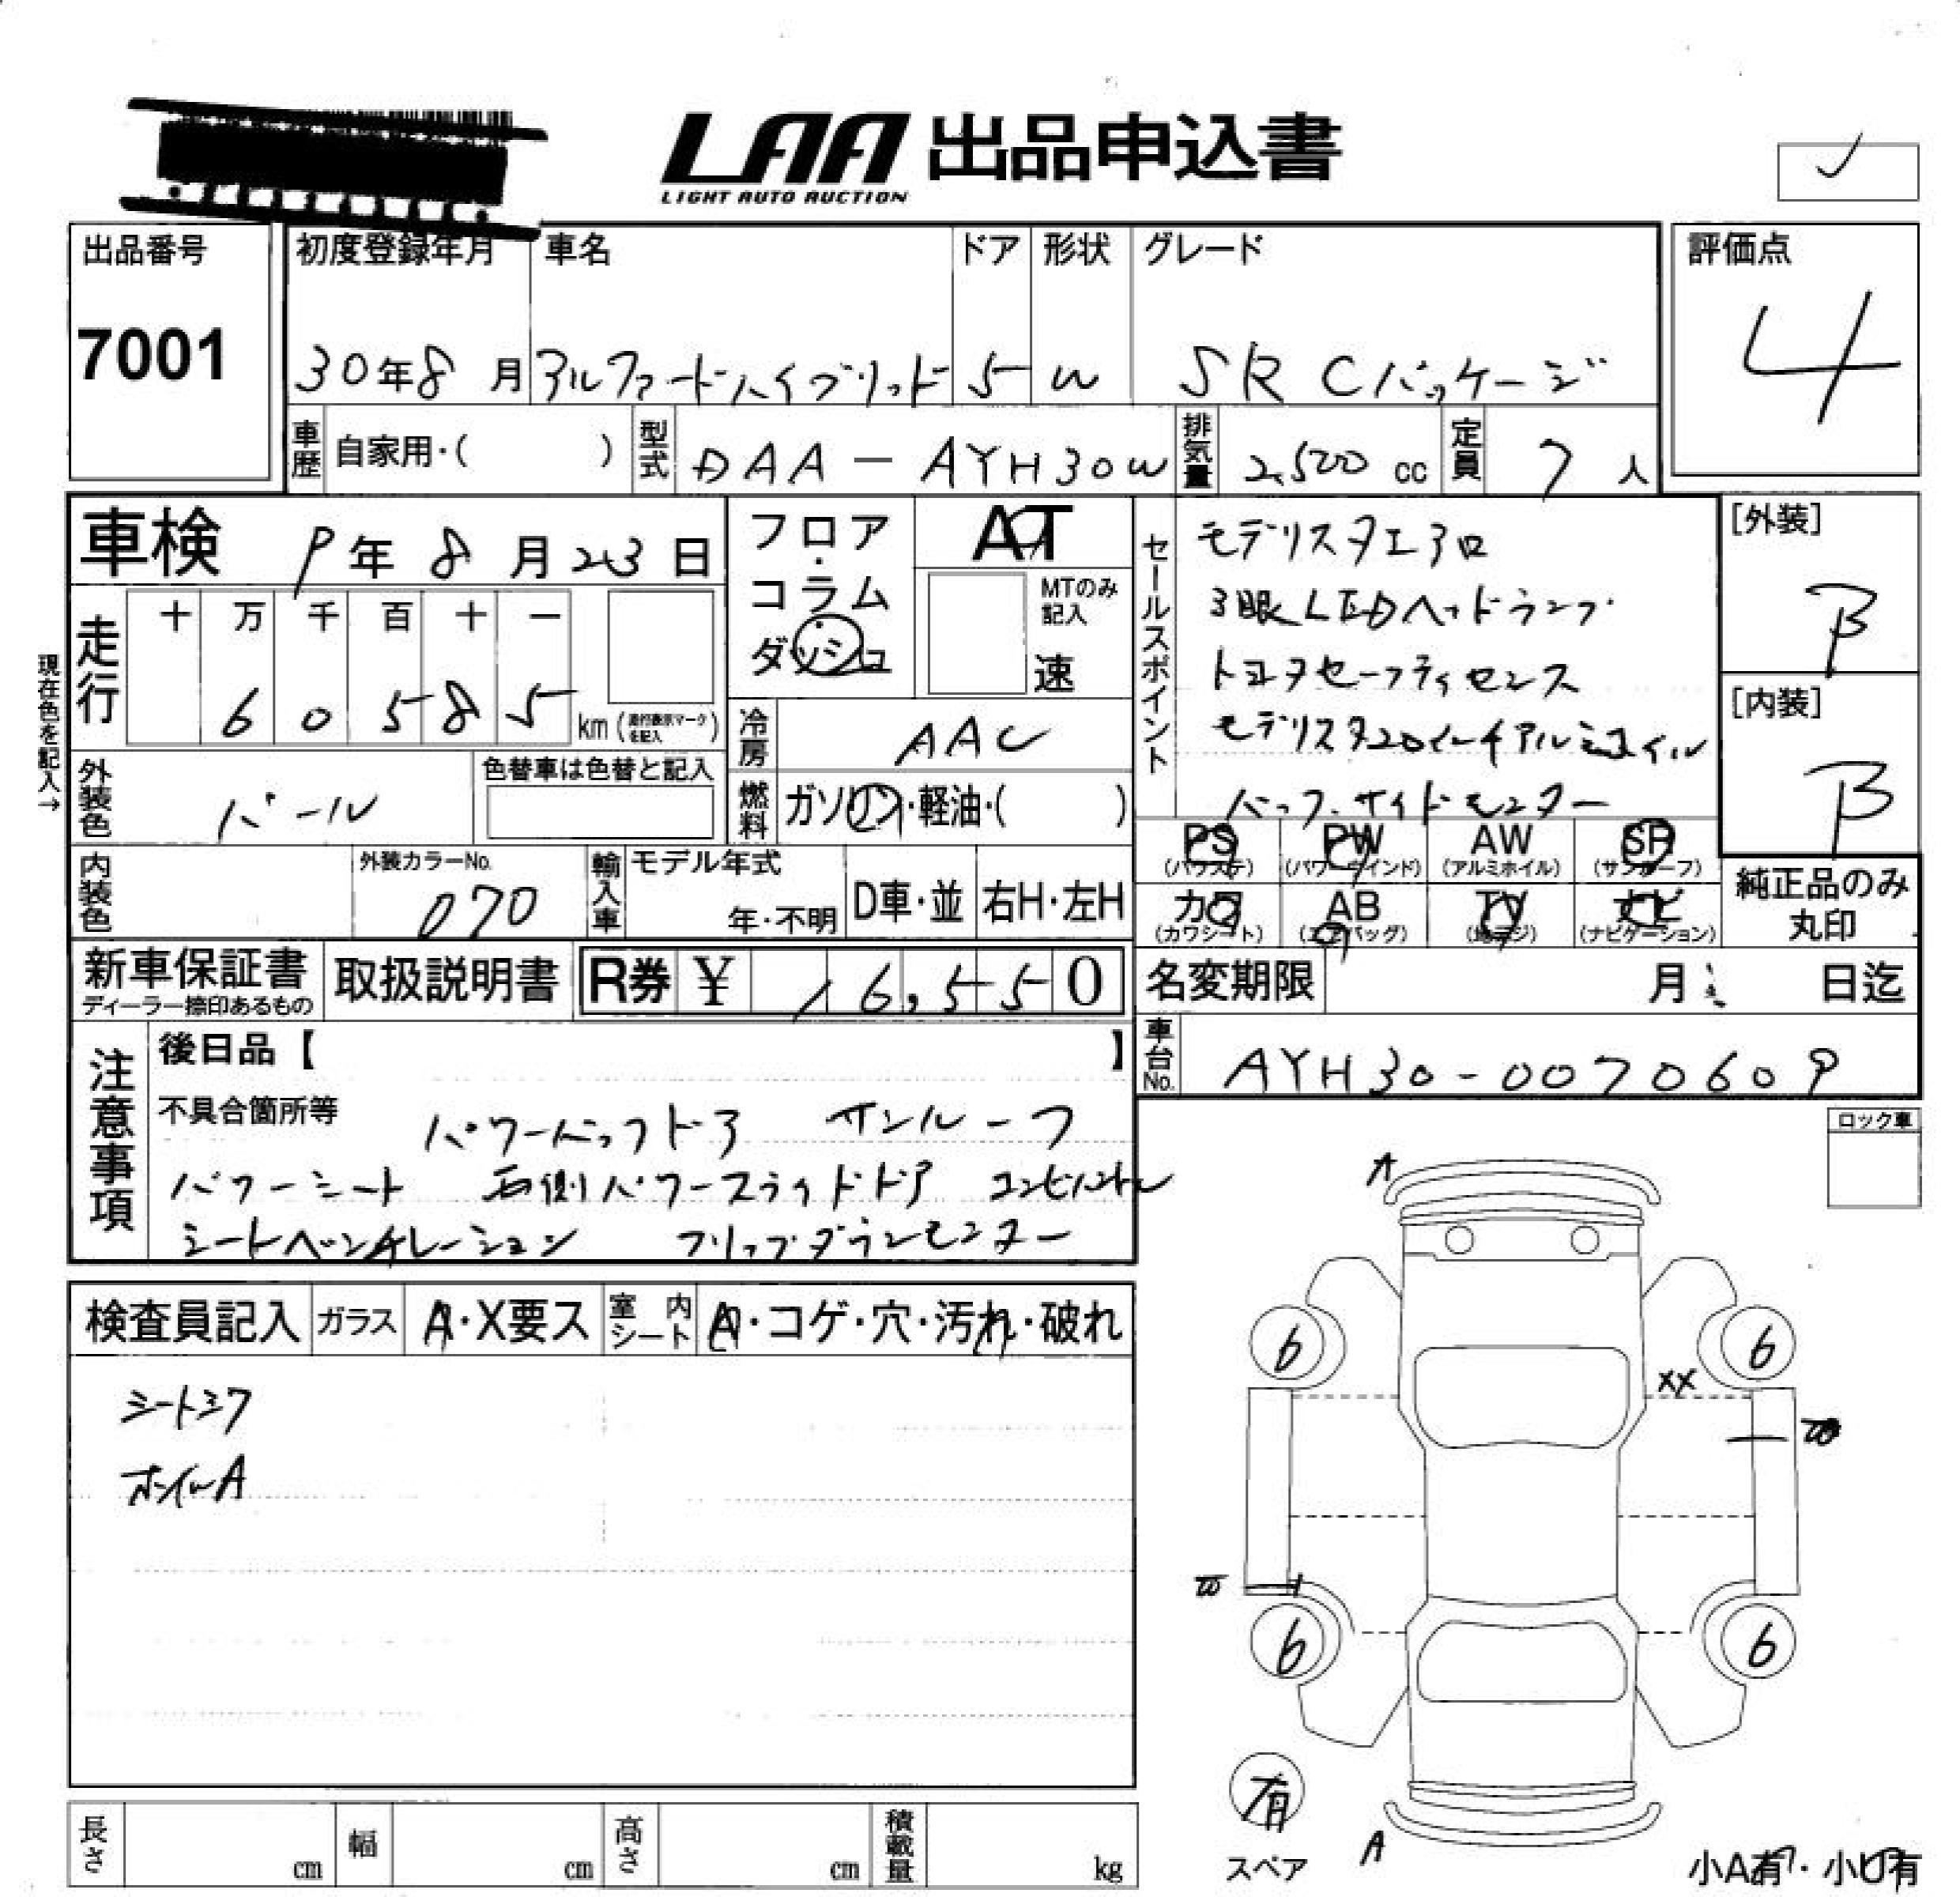 LAA 出品申込書
LIGHT AUTO AUCTION
出品番号
7001
初度登録年月 車名 ドア 形状 グレード
30年8月 アルファードハイブリッド 5 W SR Cパッケージ
評価点
4
車歴 自家用・( ) 型式 DAA-AYH30W 排気量 2,500 cc 定員 7 人
車検 9年8月23日
フロア・コラム・ダッシュ
AT
MTのみ記入
速
現在色を記入→
走行 十 万 千 百 十 一
6 0 5 8 5 km (走行表示マークを記入)
冷房 AAC
燃料 ガソリン・軽油・( )
外装色 パール
色替車は色替と記入
内装色
外装カラーNo.
070
輸入車 モデル年式
年・不明 D車・並 右H・左H
セールスポイント
モデリスタエアロ
3眼LEDヘッドランプ
トヨタセーフティセンス
モデリスタ20インチアルミホイル
バック.サイドモニター
[外装]
B
[内装]
B
PS PW AW SR
(パワステ) (パワーウインド) (アルミホイル) (サンルーフ)
カワ AB TV ナビ
(カワシート) (エアバッグ) (地デジ) (ナビゲーション)
純正品のみ
丸印
新車保証書
ディーラー捺印あるもの
取扱説明書
R券 ¥ 16,550
名変期限 月 日迄
車台No. AYH30-0070609
注意事項
後日品【 】
不具合箇所等
パワーバックドア サンルーフ
パワーシート 右側パワースライドドア コンビハンドル
シートベンチレーション フリップダウンモニター
ロック車
検査員記入 ガラス A・X要ス 室内シート A・コゲ・穴・汚れ・破れ
シートシワ
ホイルA
A
6 6
XX
6 6
有
スペア
A
小A有・小U有
長さ cm 幅 cm 高さ cm 積載量 kg